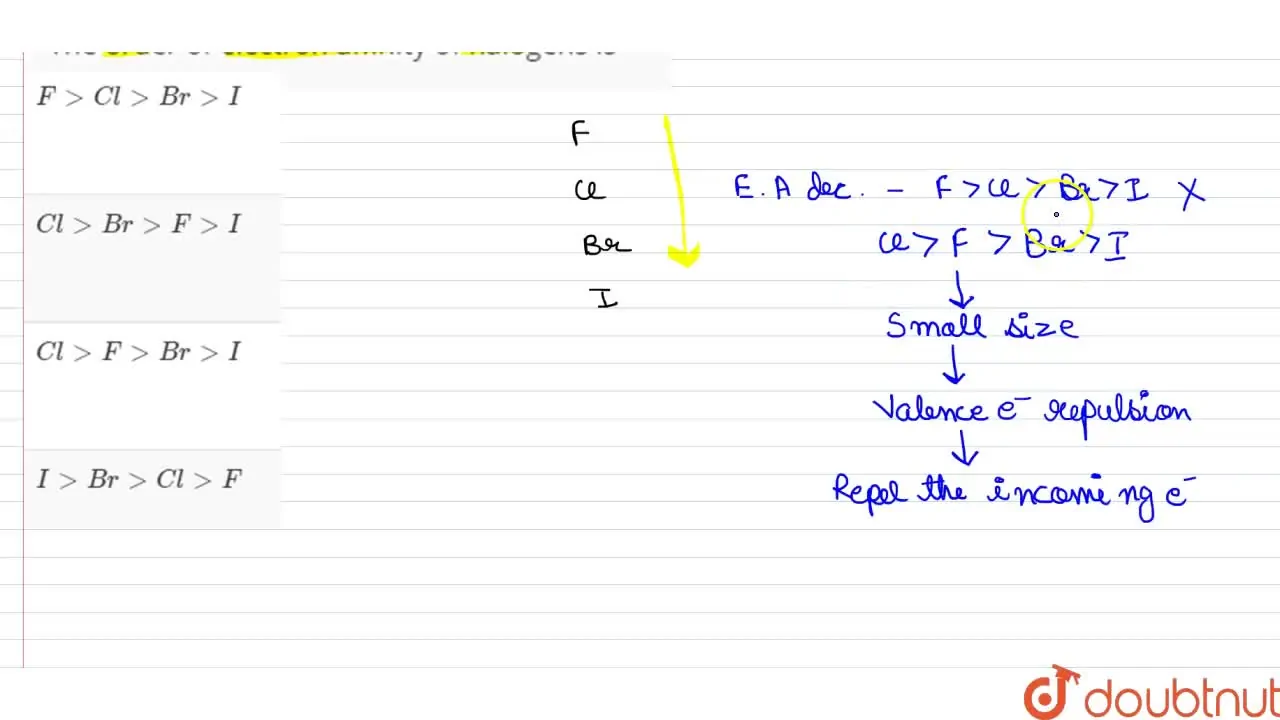 The order of electron affinity of halogens is
F > Cl > Br > I
Cl > Br > F > I
Cl > F > Br > I
I > Br > Cl > F
F
Cl
Br
I
E.A dec. - F > Cl > Br > I X
Cl > F > Br > I
Small size
Valence e⁻ repulsion
Repel the incoming e⁻
doubtnut